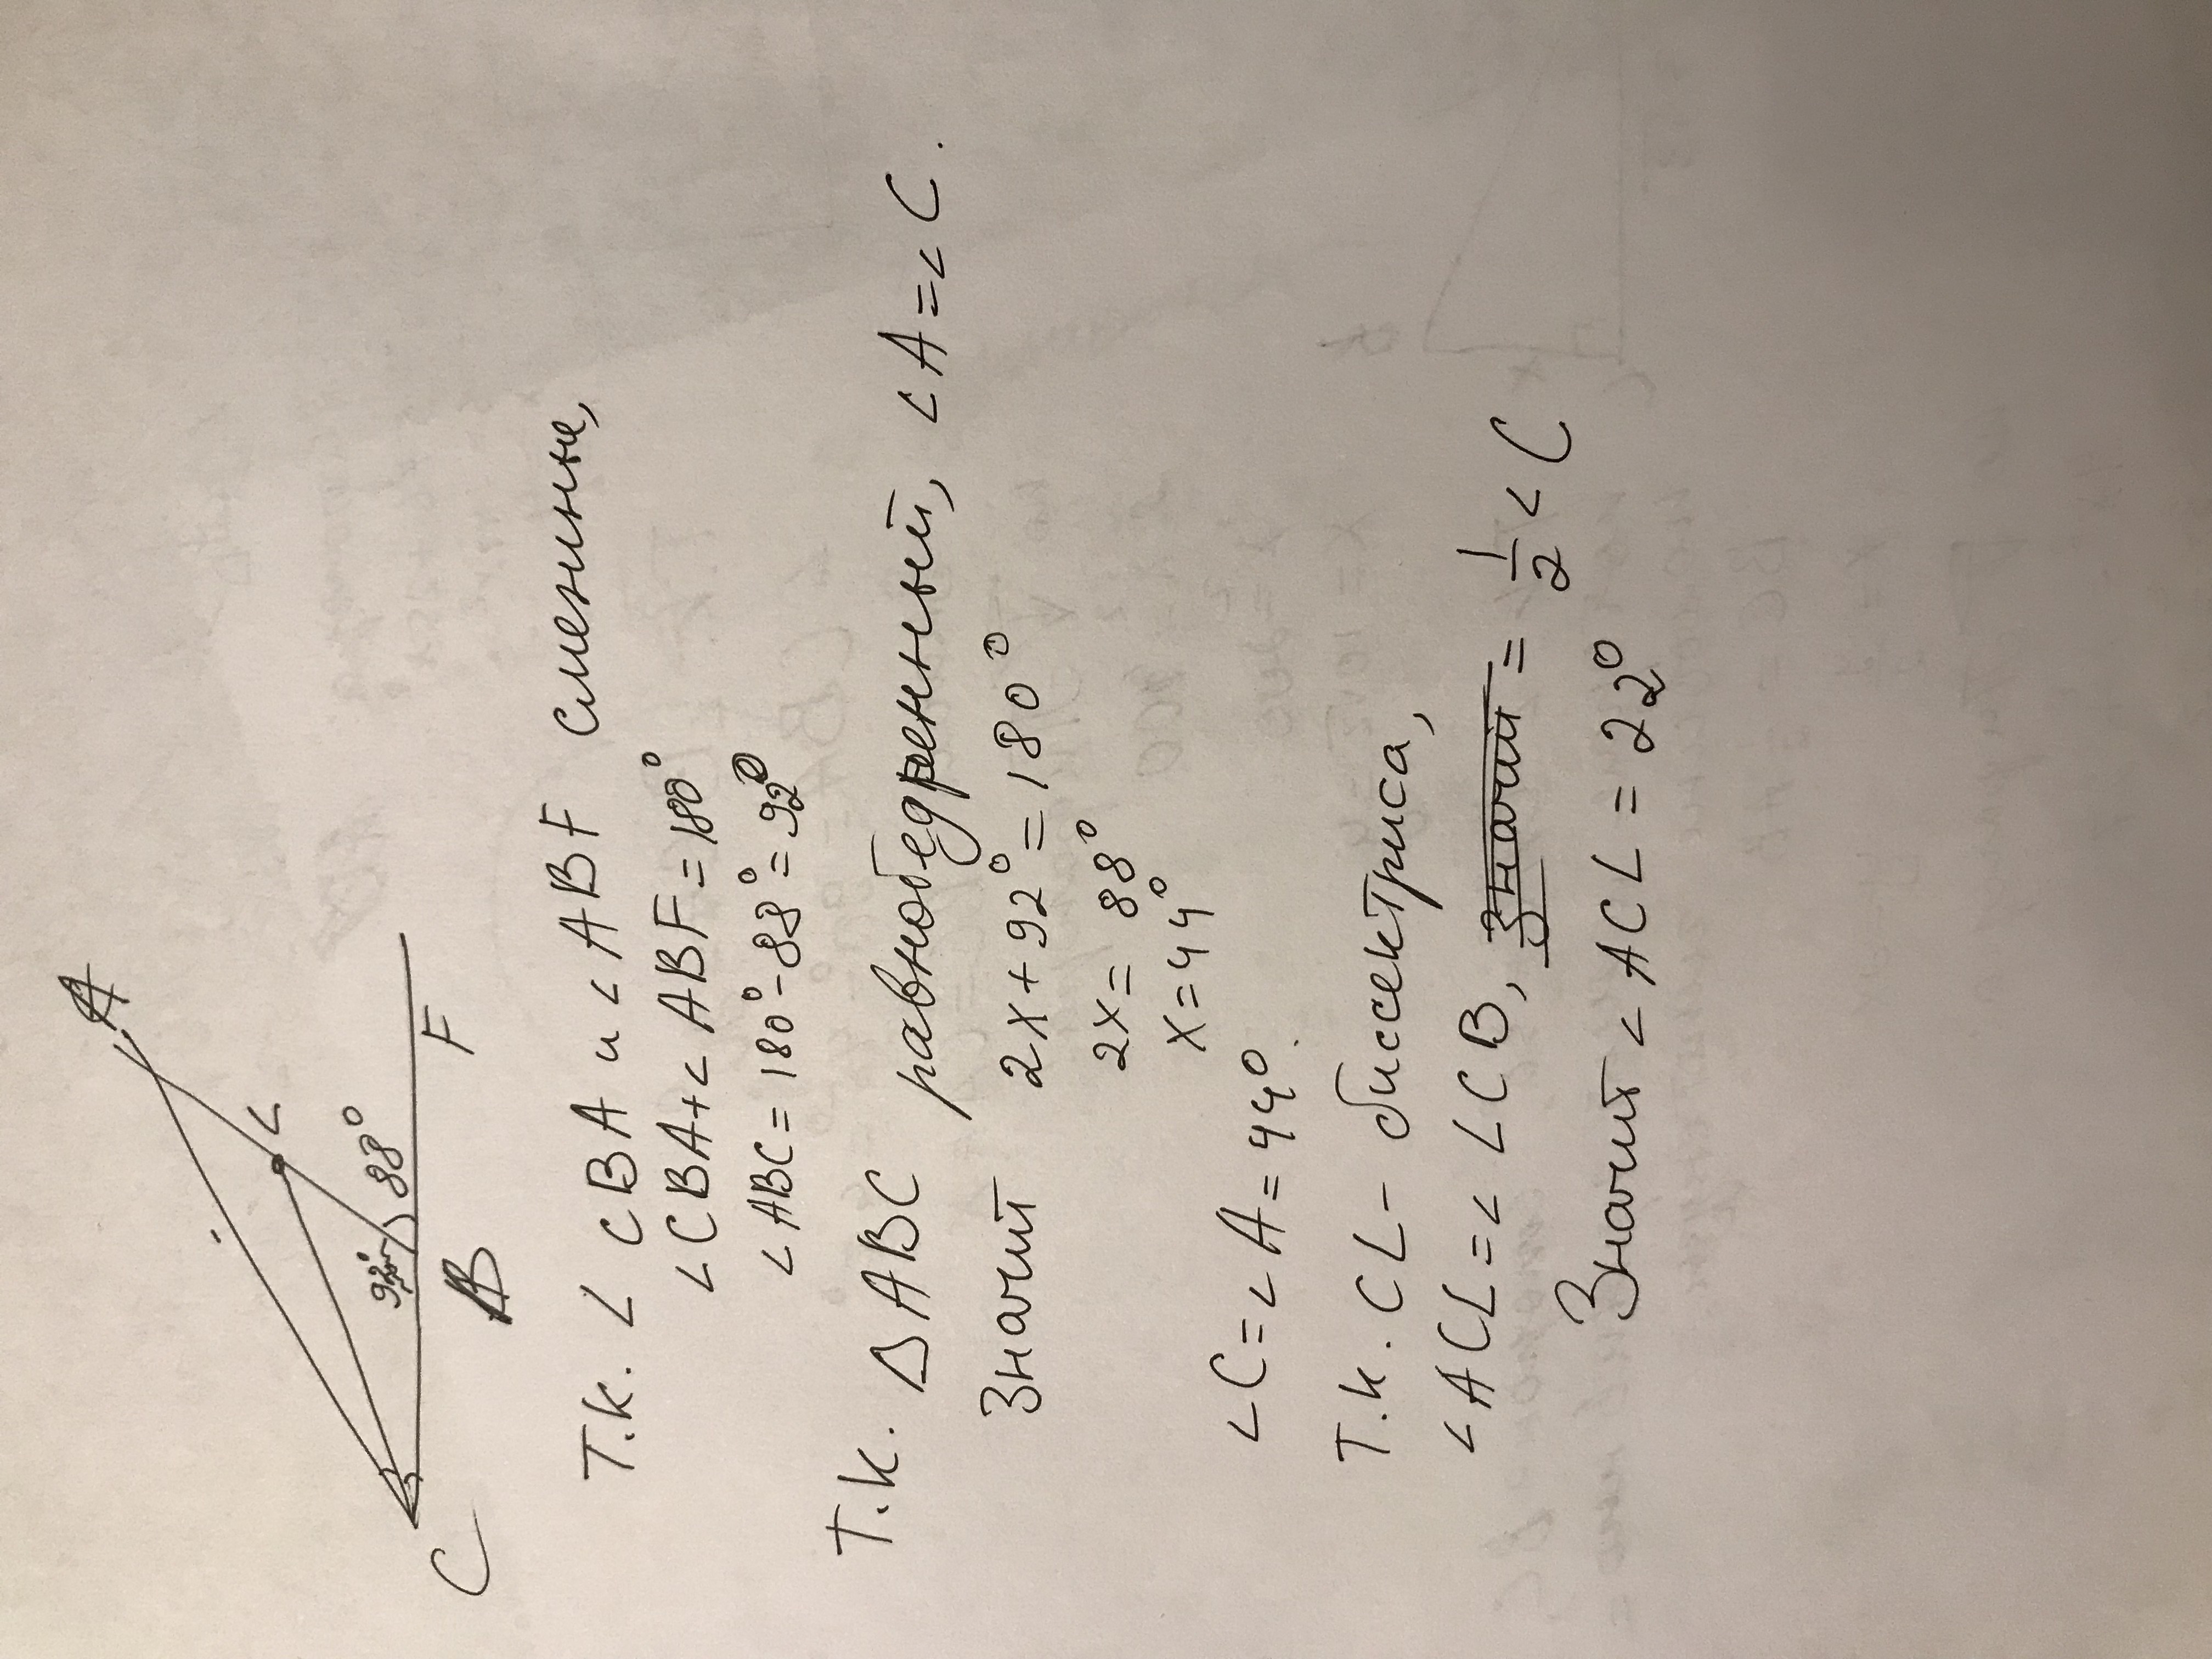 A
L
92°
88°
C
B
F
Т.к. ∠ CBA и ∠ ABF смежные,
∠CBA+∠ABF=180°
∠ABC=180°-88°=92°
Т.к. ΔABC равнобедренный, ∠A=∠C.
Значит 2x+92°=180°
2x=88°
x=44°
∠C=∠A=44°.
Т.к. CL- биссектриса,
∠ACL=∠LCB, значит = 1/2 ∠C
Значит ∠ACL=22°